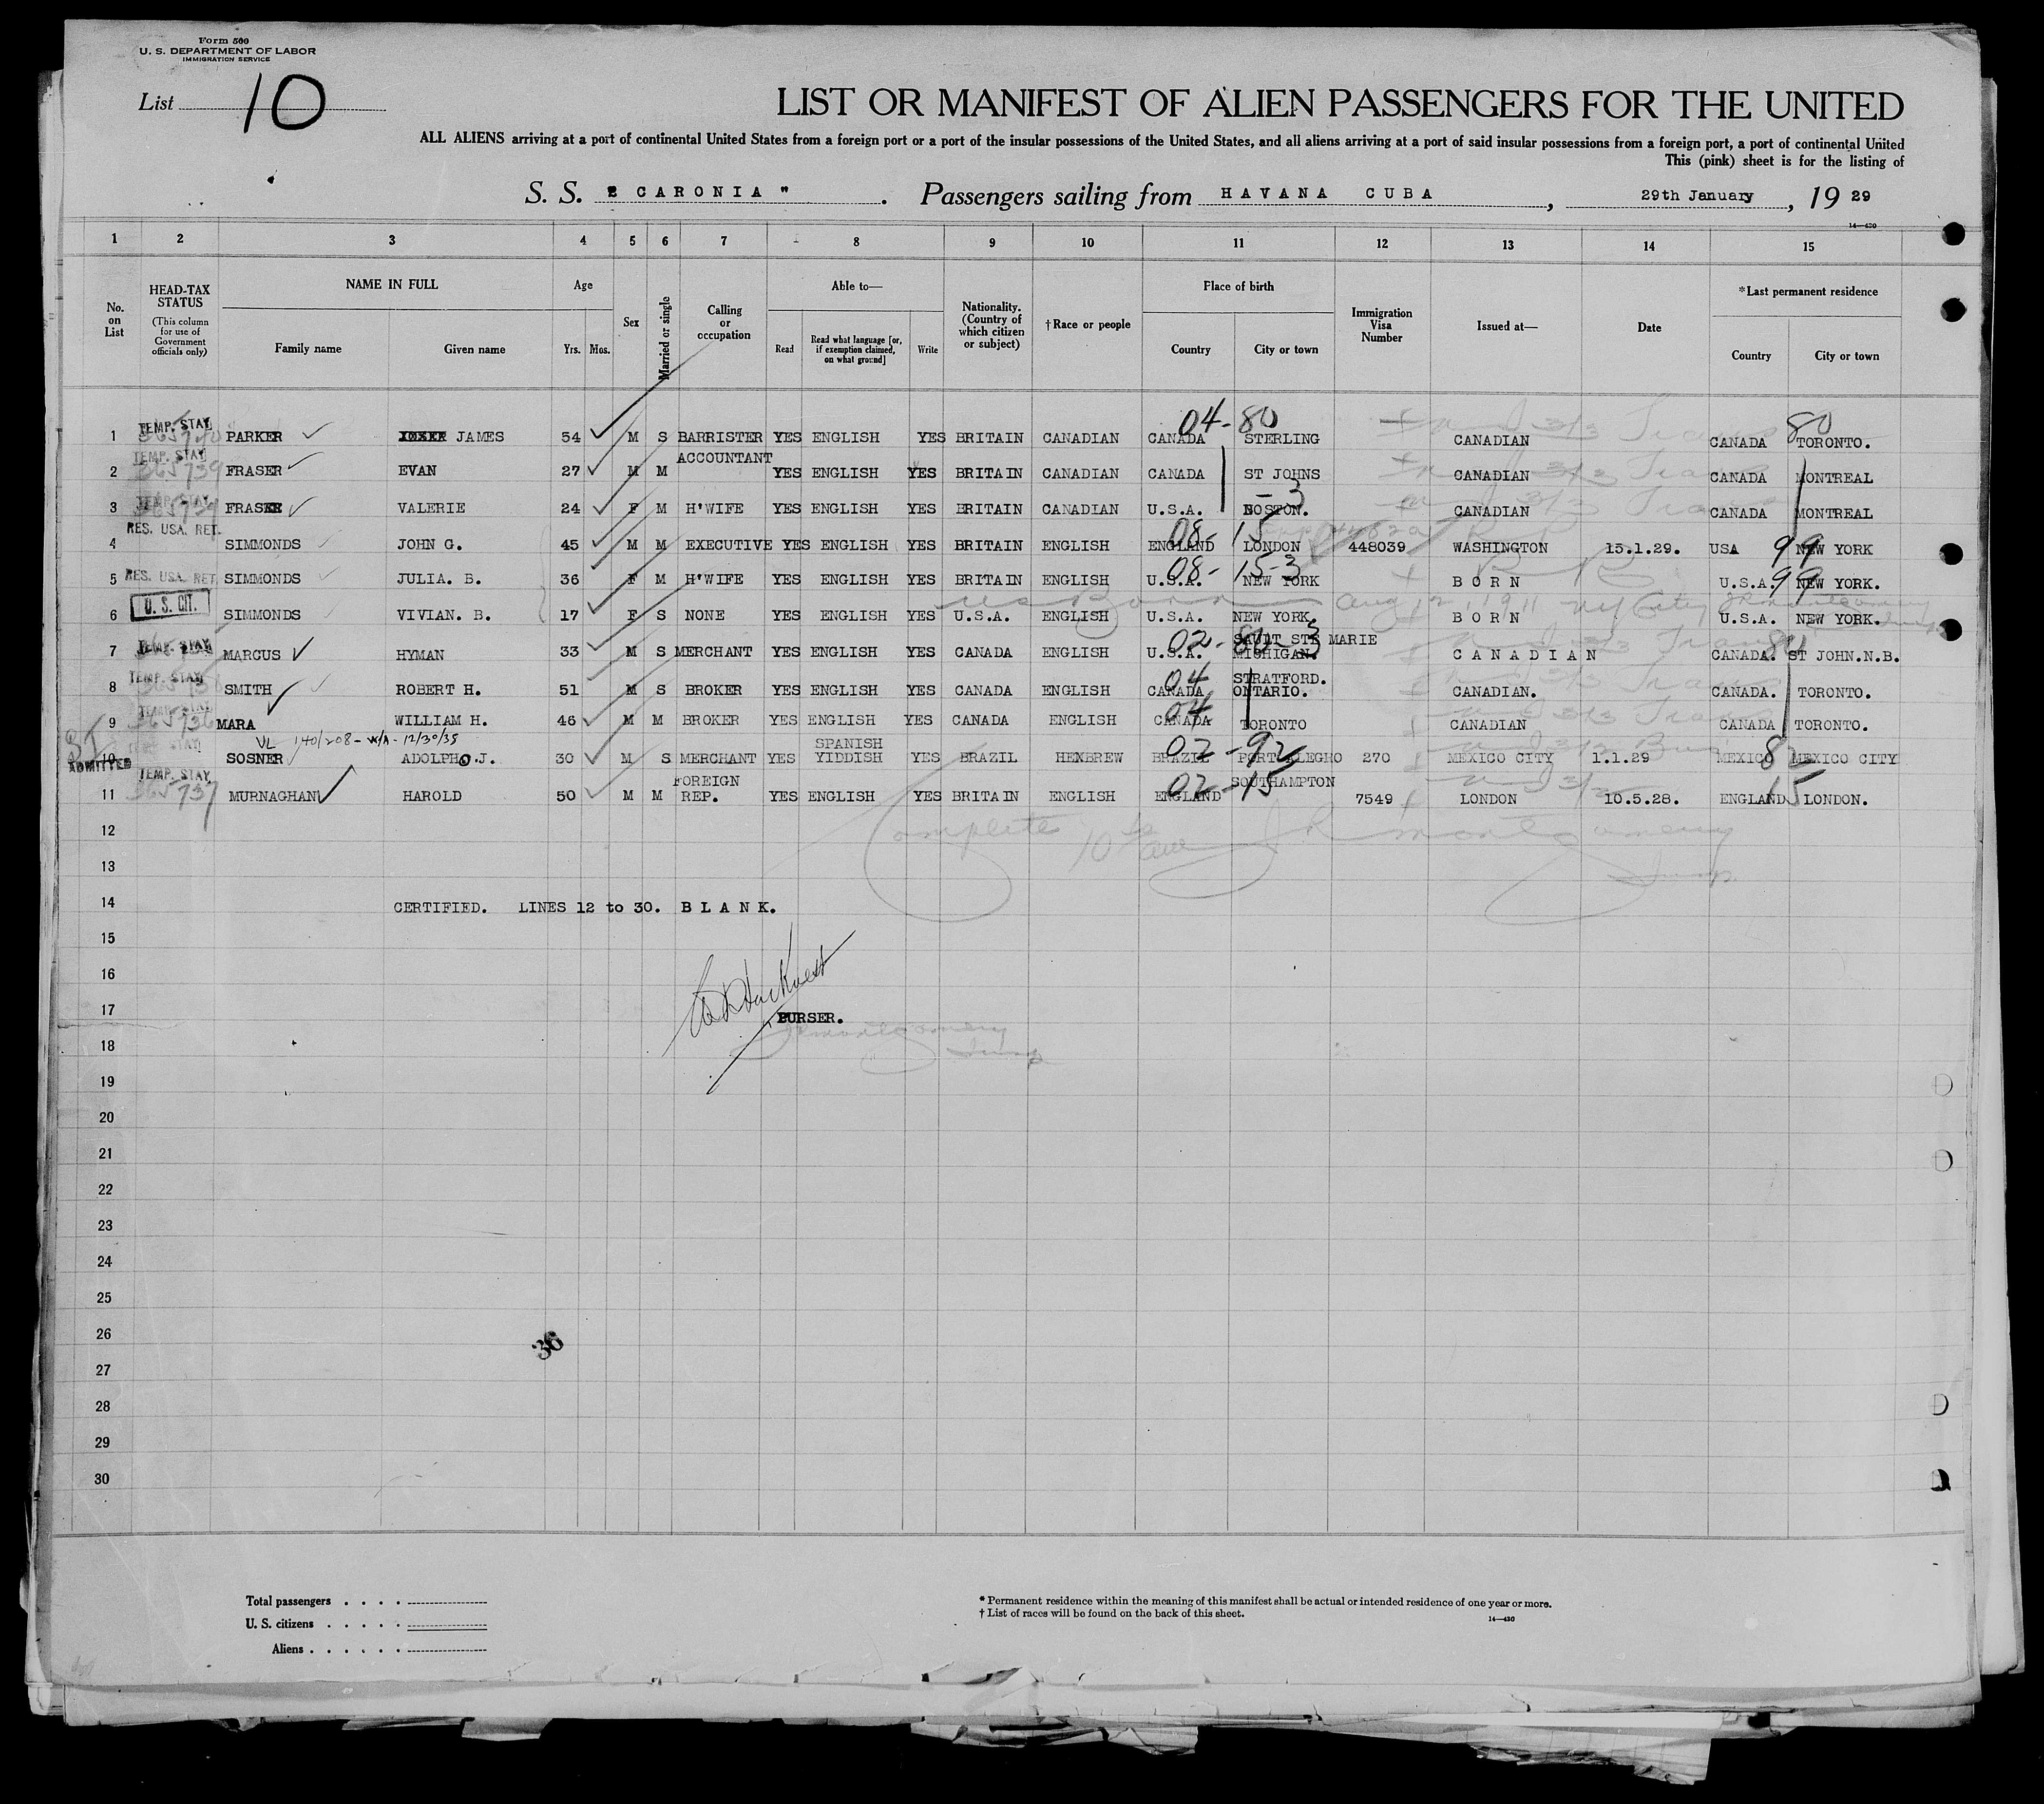 Form 500
U. S. DEPARTMENT OF LABOR
IMMIGRATION SERVICE
List 10
LIST OR MANIFEST OF ALIEN PASSENGERS FOR THE UNITED
ALL ALIENS arriving at a port of continental United States from a foreign port or a port of the insular possessions of the United States, and all aliens arriving at a port of said insular possessions from a foreign port, a port of continental United
This (pink) sheet is for the listing of
S. S. " CARONIA ". Passengers sailing from HAVANA CUBA, 29th January, 19 29
14—430
1 2 3 4 5 6 7 8 9 10 11 12 13 14 15
No. on List
HEAD-TAX STATUS (This column for use of Government officials only)
NAME IN FULL Family name Given name
Age Yrs. Mos.
Sex
Married or single
Calling or occupation
Able to— Read Read what language [or, if exemption claimed, on what ground] Write
Nationality. (Country of which citizen or subject)
†Race or people
Place of birth Country City or town
Immigration Visa Number
Issued at—
Date
*Last permanent residence Country City or town
04-80 80
1 TEMP. STAY PARKER JAMES 54 M S BARRISTER YES ENGLISH YES BRITAIN CANADIAN CANADA STERLING CANADIAN CANADA TORONTO.
2 TEMP. STAY 365739 FRASER EVAN 27 M M ACCOUNTANT YES ENGLISH YES BRITAIN CANADIAN CANADA ST JOHNS CANADIAN CANADA MONTREAL
3 TEMP. STAY FRASER VALERIE 24 F M H'WIFE YES ENGLISH YES BRITAIN CANADIAN U.S.A. BOSTON. - 3 CANADIAN CANADA MONTREAL
4 RES. USA. RET. SIMMONDS JOHN G. 45 M M EXECUTIVE YES ENGLISH YES BRITAIN ENGLISH ENGLAND LONDON 08-15 448039 WASHINGTON 15.1.29. USA 99 NEW YORK
5 RES. USA. RET. SIMMONDS JULIA. B. 36 F M H'WIFE YES ENGLISH YES BRITAIN ENGLISH U.S.A. NEW YORK 08-15-3 BORN U.S.A. 99 NEW YORK.
6 U. S. CIT. SIMMONDS VIVIAN. B. 17 F S NONE YES ENGLISH YES U.S.A. ENGLISH U.S.A. NEW YORK. BORN U.S.A. NEW YORK.
US Born Aug 12, 1911 NY City
7 TEMP. STAY MARCUS HYMAN 33 M S MERCHANT YES ENGLISH YES CANADA ENGLISH U.S.A. SAULT STE MARIE MICHIGAN. 02-80-3 CANADIAN CANADA. 80 ST JOHN.N.B.
8 TEMP. STAY SMITH ROBERT H. 51 M S BROKER YES ENGLISH YES CANADA ENGLISH CANADA 04 STRATFORD. ONTARIO. CANADIAN. CANADA. TORONTO.
9 365736 MARA WILLIAM H. 46 M M BROKER YES ENGLISH YES CANADA ENGLISH CANADA 04 TORONTO CANADIAN CANADA TORONTO.
VL 140/208 - W/A - 12/30/35
10 SI ADMITTED TEMP. STAY SOSNER ADOLPHO.J. 30 M S MERCHANT YES SPANISH YIDDISH YES BRAZIL HEXBREW BRAZIL PORT ALEGRO 02-92 270 MEXICO CITY 1.1.29 MEXICO 82 MEXICO CITY
11 TEMP. STAY 365737 MURNAGHAN HAROLD 50 M M FOREIGN REP. YES ENGLISH YES BRITAIN ENGLISH ENGLAND SOUTHAMPTON 02-15 7549 LONDON 10.5.28. ENGLAND 15 LONDON.
12
Complete
13
14 CERTIFIED. LINES 12 to 30. BLANK.
15
16
17 PURSER.
18
19
20
21
22
23
24
25
26
36
27
28
29
30
Total passengers
U. S. citizens
Aliens
* Permanent residence within the meaning of this manifest shall be actual or intended residence of one year or more.
† List of races will be found on the back of this sheet.
14—430